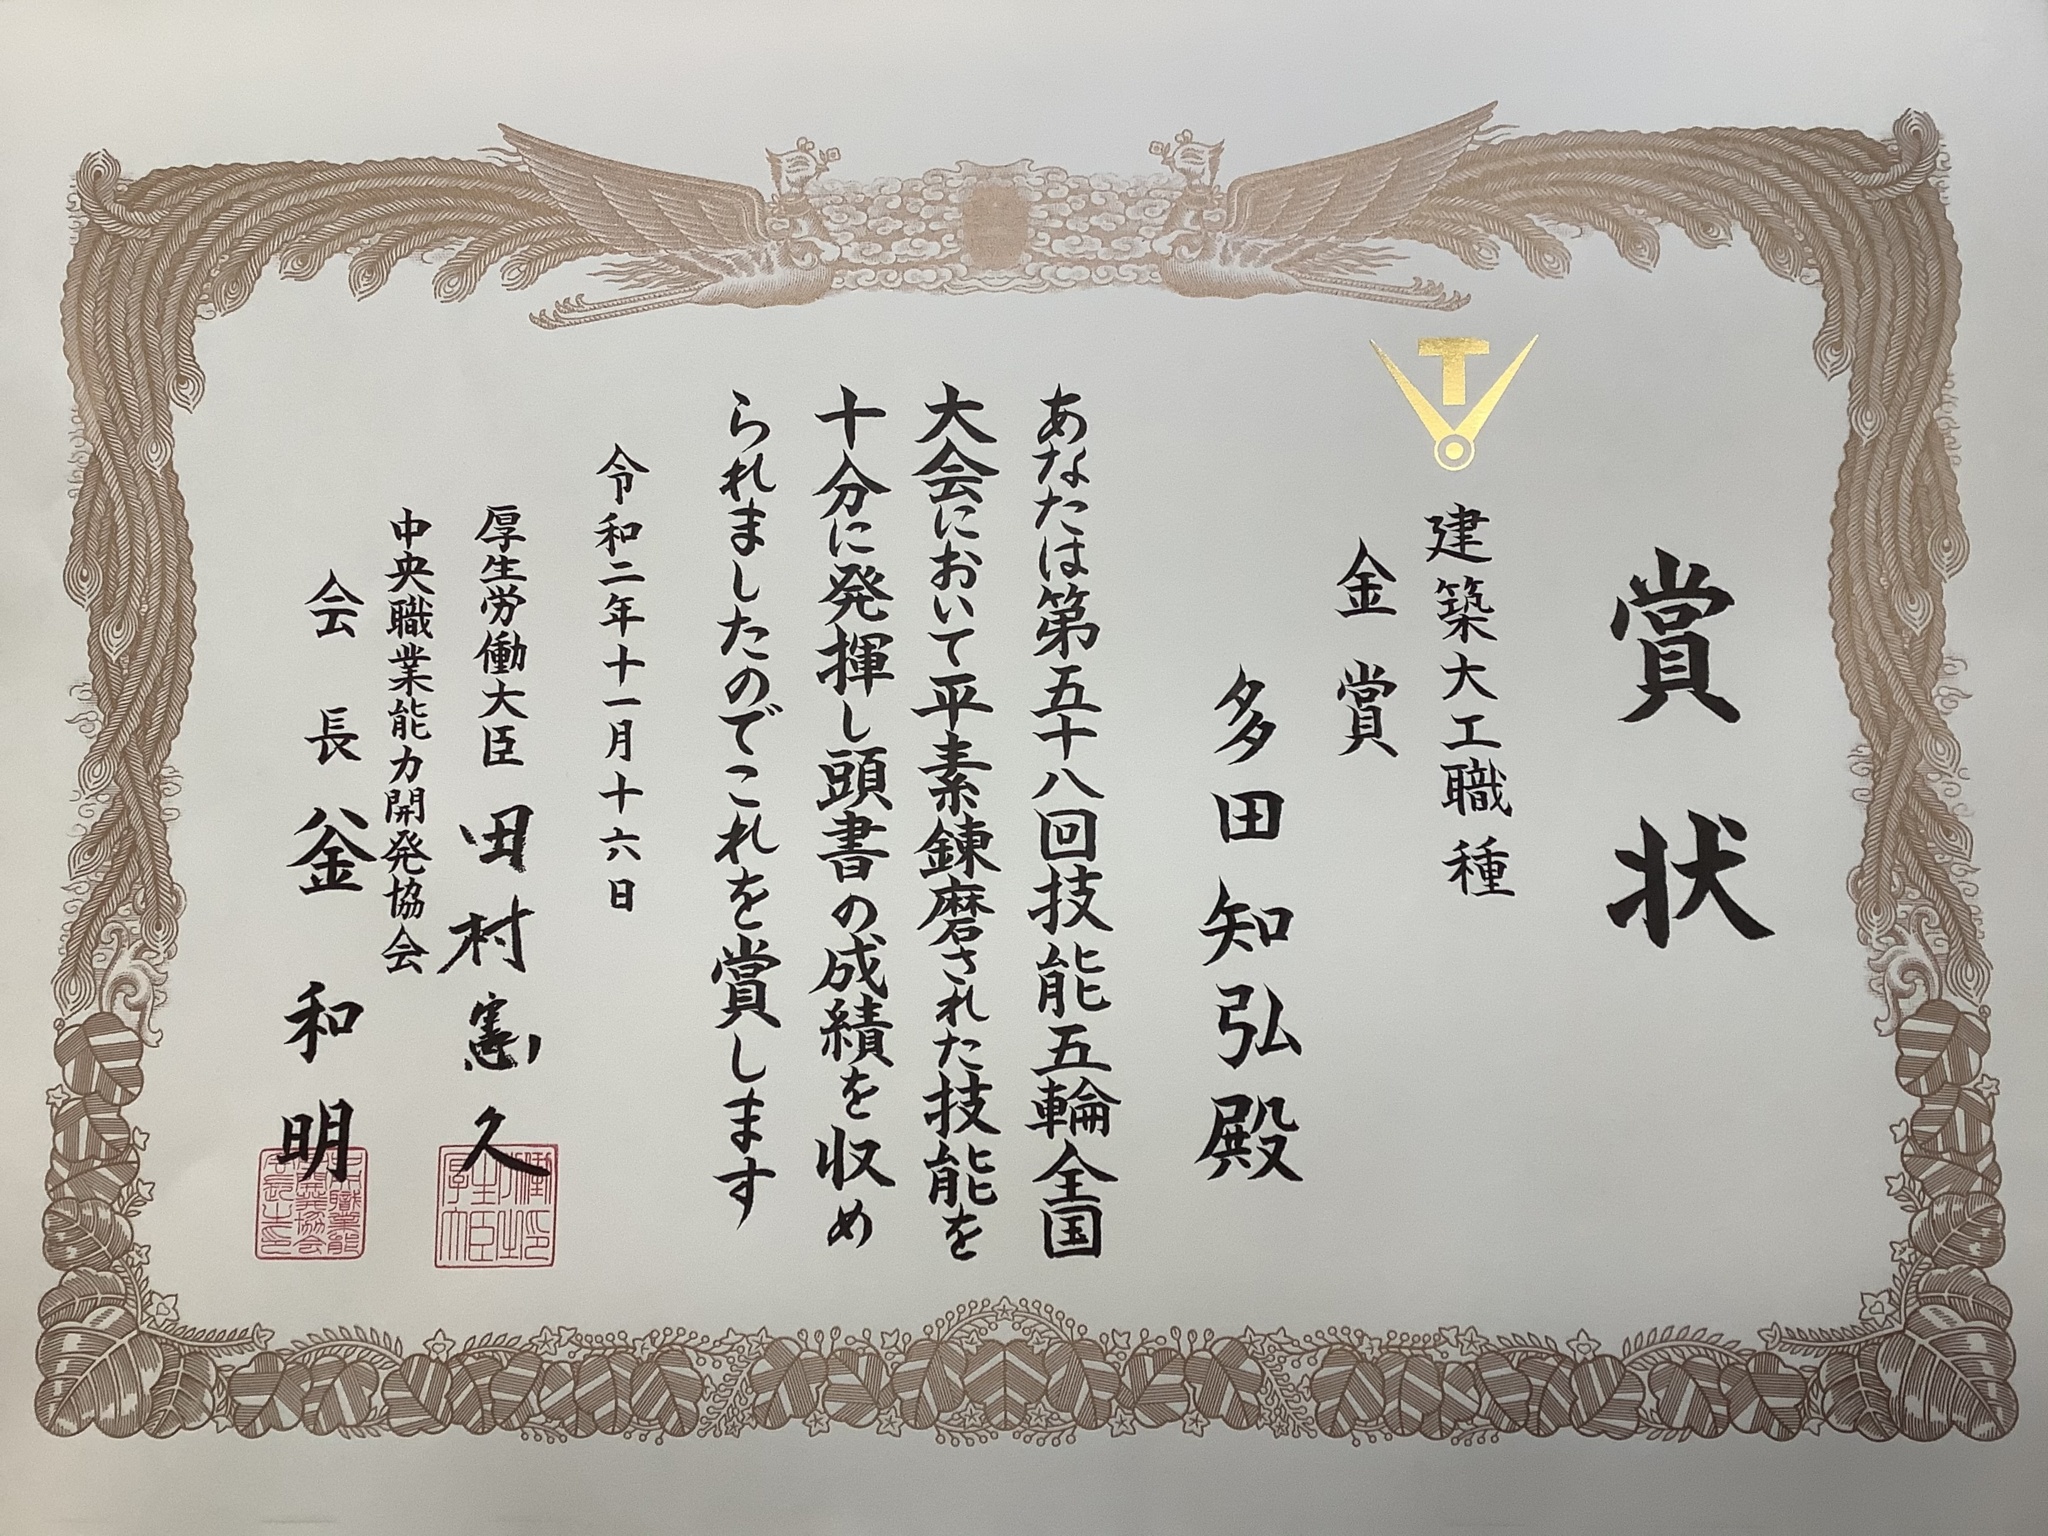 賞状
T
建築大工職種
金賞
多田知弘殿
あなたは第五十八回技能五輪全国
大会において平素錬磨された技能を
十分に発揮し頭書の成績を収め
られましたのでこれを賞します
令和二年十一月十六日
厚生労働大臣 田村憲久
中央職業能力開発協会
会長 釜和明